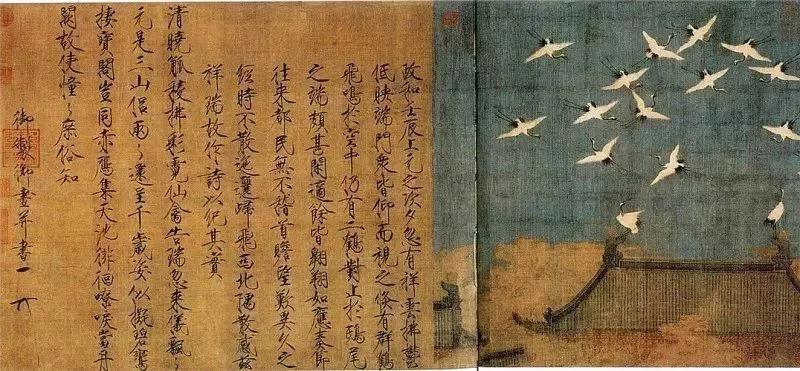 政和壬辰上元之次夕忽有祥雲拂鬱
低映端門衆皆仰而視之倏有群鶴
飛鳴於空中仍有二鶴對止於鴟尾
之端頗甚閒適餘皆翱翔如應奏節
往來都民無不稽首瞻望歎異久之
經時不散迤邐歸飛西北隅散感茲
祥瑞故作詩以紀其實
清曉觚稜拂彩霓仙禽告瑞忽來儀飄々
元是三山侶兩々還呈千歲姿似擬碧鸞
棲寶閣豈同赤鴈集天池徘徊嘹唳當丹
闕故使憧々庶俗知
御製御畫并書